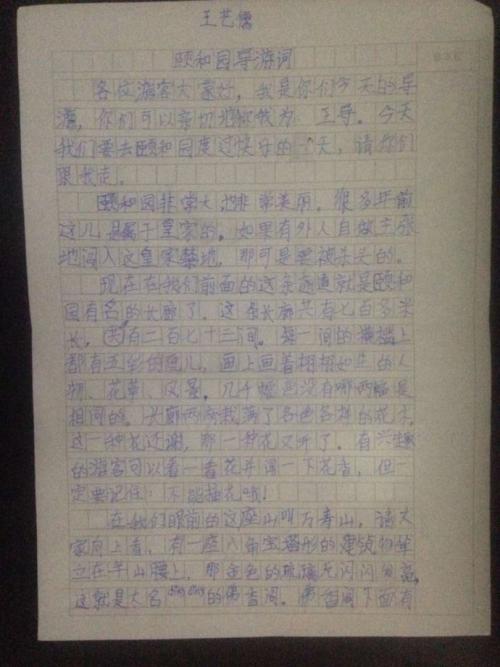 王艺儒
颐和园导游词
各位游客大家好，我是你们今天的导
游，你们可以亲切地叫我为王导。今天
我们要去颐和园度过快乐的一天，请你们
跟我走！
颐和园非常大，也非常美丽。很多年前
这儿是属于皇家的。如果有外人自做主张
地闯入这皇家禁地，那可是要被杀头的。
现在在我们前面的这条通道就是颐和
园有名的长廊了。这条长廊共有七百多米
长，因有二百七十三间。每一间的横槛上
都有五彩的画儿，画上画着栩栩如生的人
物、花草、风景。几千幅画没有哪两幅是
相同的。长廊两旁栽满了各色各样的花木，
这一种花还谢，那一种花又开了。有兴趣
的游客可以看一看花并闻一下花香，但一
定要记住：不能摘花哦！
在我们眼前的这座山叫万寿山，请大
家向上看，有一座八角宝塔形的建筑物耸
立在半山腰上，那金色的琉璃瓦闪闪发亮，
这就是大名dǐngdǐng的佛香阁。佛香阁下面有